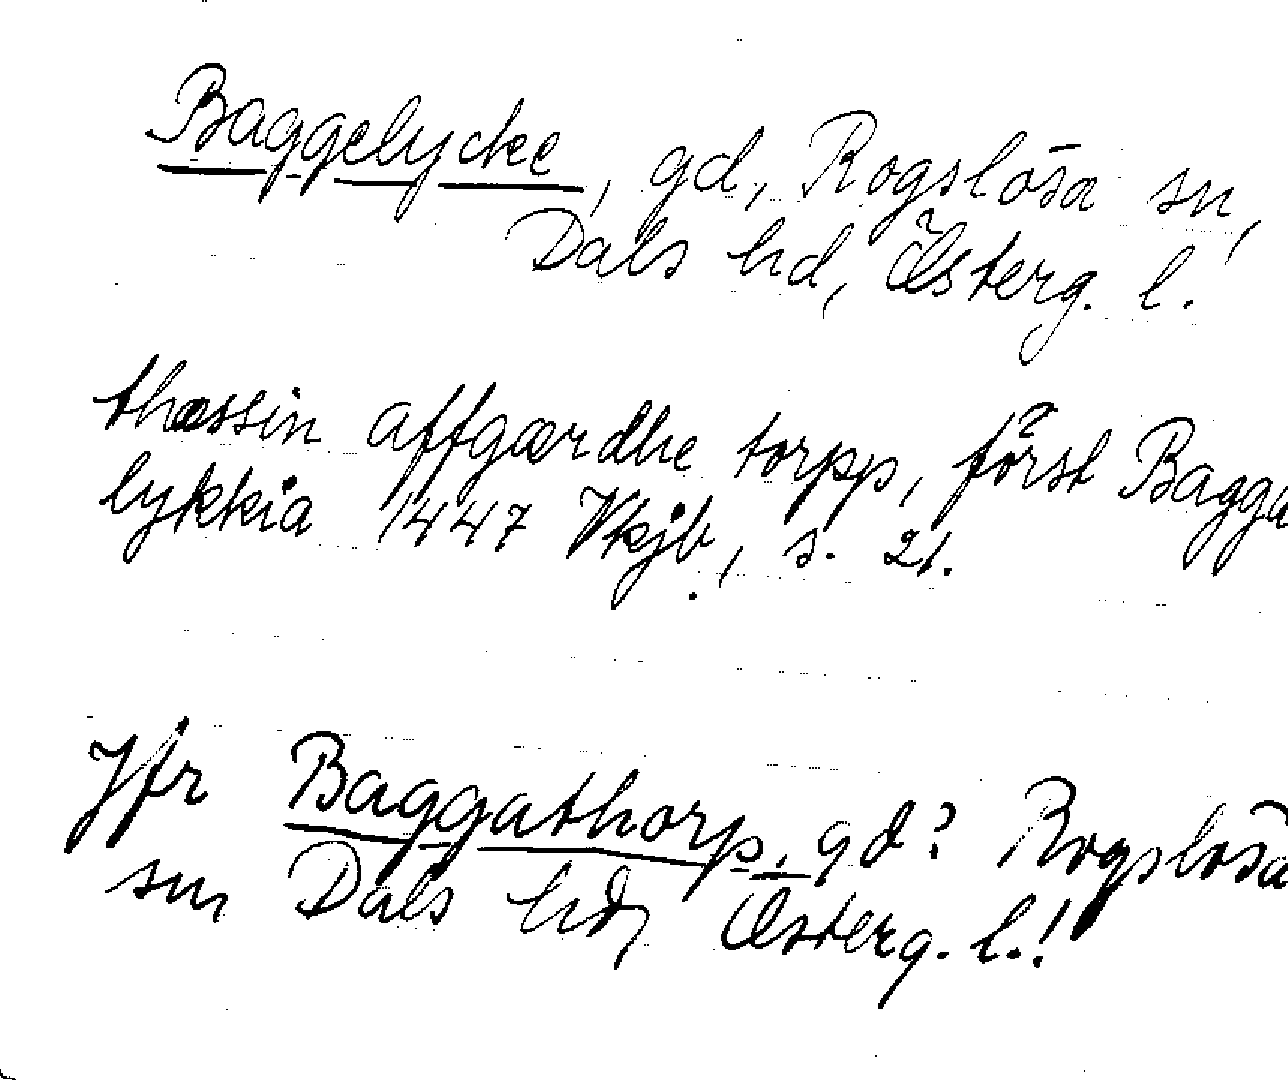 Baggelycke, gd, Rogslösa sn,
Dals hd, Österg. l.
thæssin affgærdhe torpp, först Bagga
lykkia 1447 Vkjb, s. 21.
Jfr Baggathorp, gd? Rogslösa
sn, Dals hd, Österg. l.!